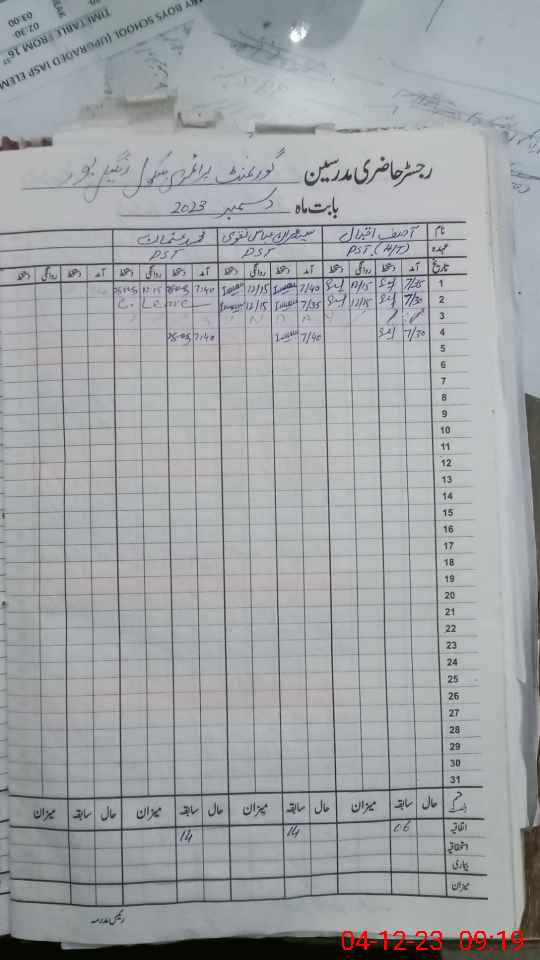 MY BOYS SCHOOL (UPGRADED IASP ELEM
TIMETABLE FROM 16ST
02:30
03:00
رجسٹر حاضری مدرسین گورنمنٹ پرائمری سکول رنگیل پور
بابت ماہ دسمبر 2023
نام آصف اقبال محمد عثمان
عہدہ PST (H/T) PST PST
تاریخ آمد دستخط روانگی دستخط آمد دستخط روانگی دستخط آمد دستخط روانگی دستخط آمد دستخط روانگی دستخط
1 7/25 12/15 7/40 12/15 7/40 12:15
2 7/30 12/15 7/35 12/15 C. Leave
3
4 7/30 7/40 7:40
5
6
7
8
9
10
11
12
13
14
15
16
17
18
19
20
21
22
23
24
25
26
27
28
29
30
31
حال سابقہ میزان حال سابقہ میزان حال سابقہ میزان حال سابقہ میزان
اتفاقیہ 06 14 14
استحقاقیہ
بیماری
میزان
رئیس مدرسہ
04-12-23 09:19